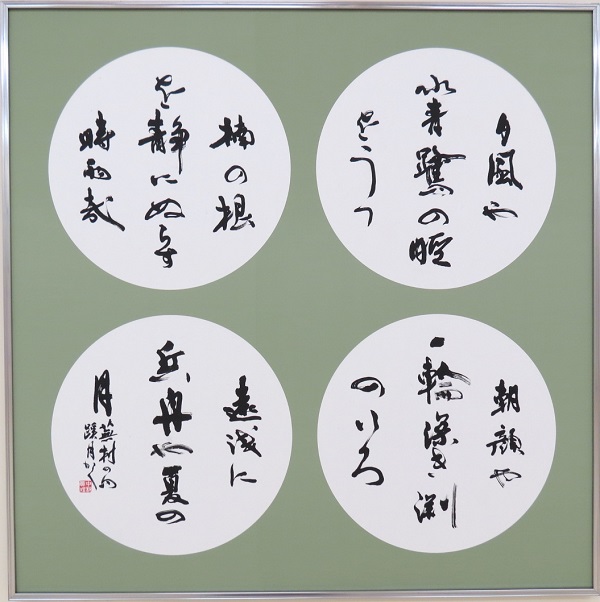 夕風や
水青鷺の脛
をうつ
楠の根
を静にぬらす
時雨哉
朝顔や
一輪深き渕
のいろ
遠浅に
兵舟や夏の
月
蕪村の句